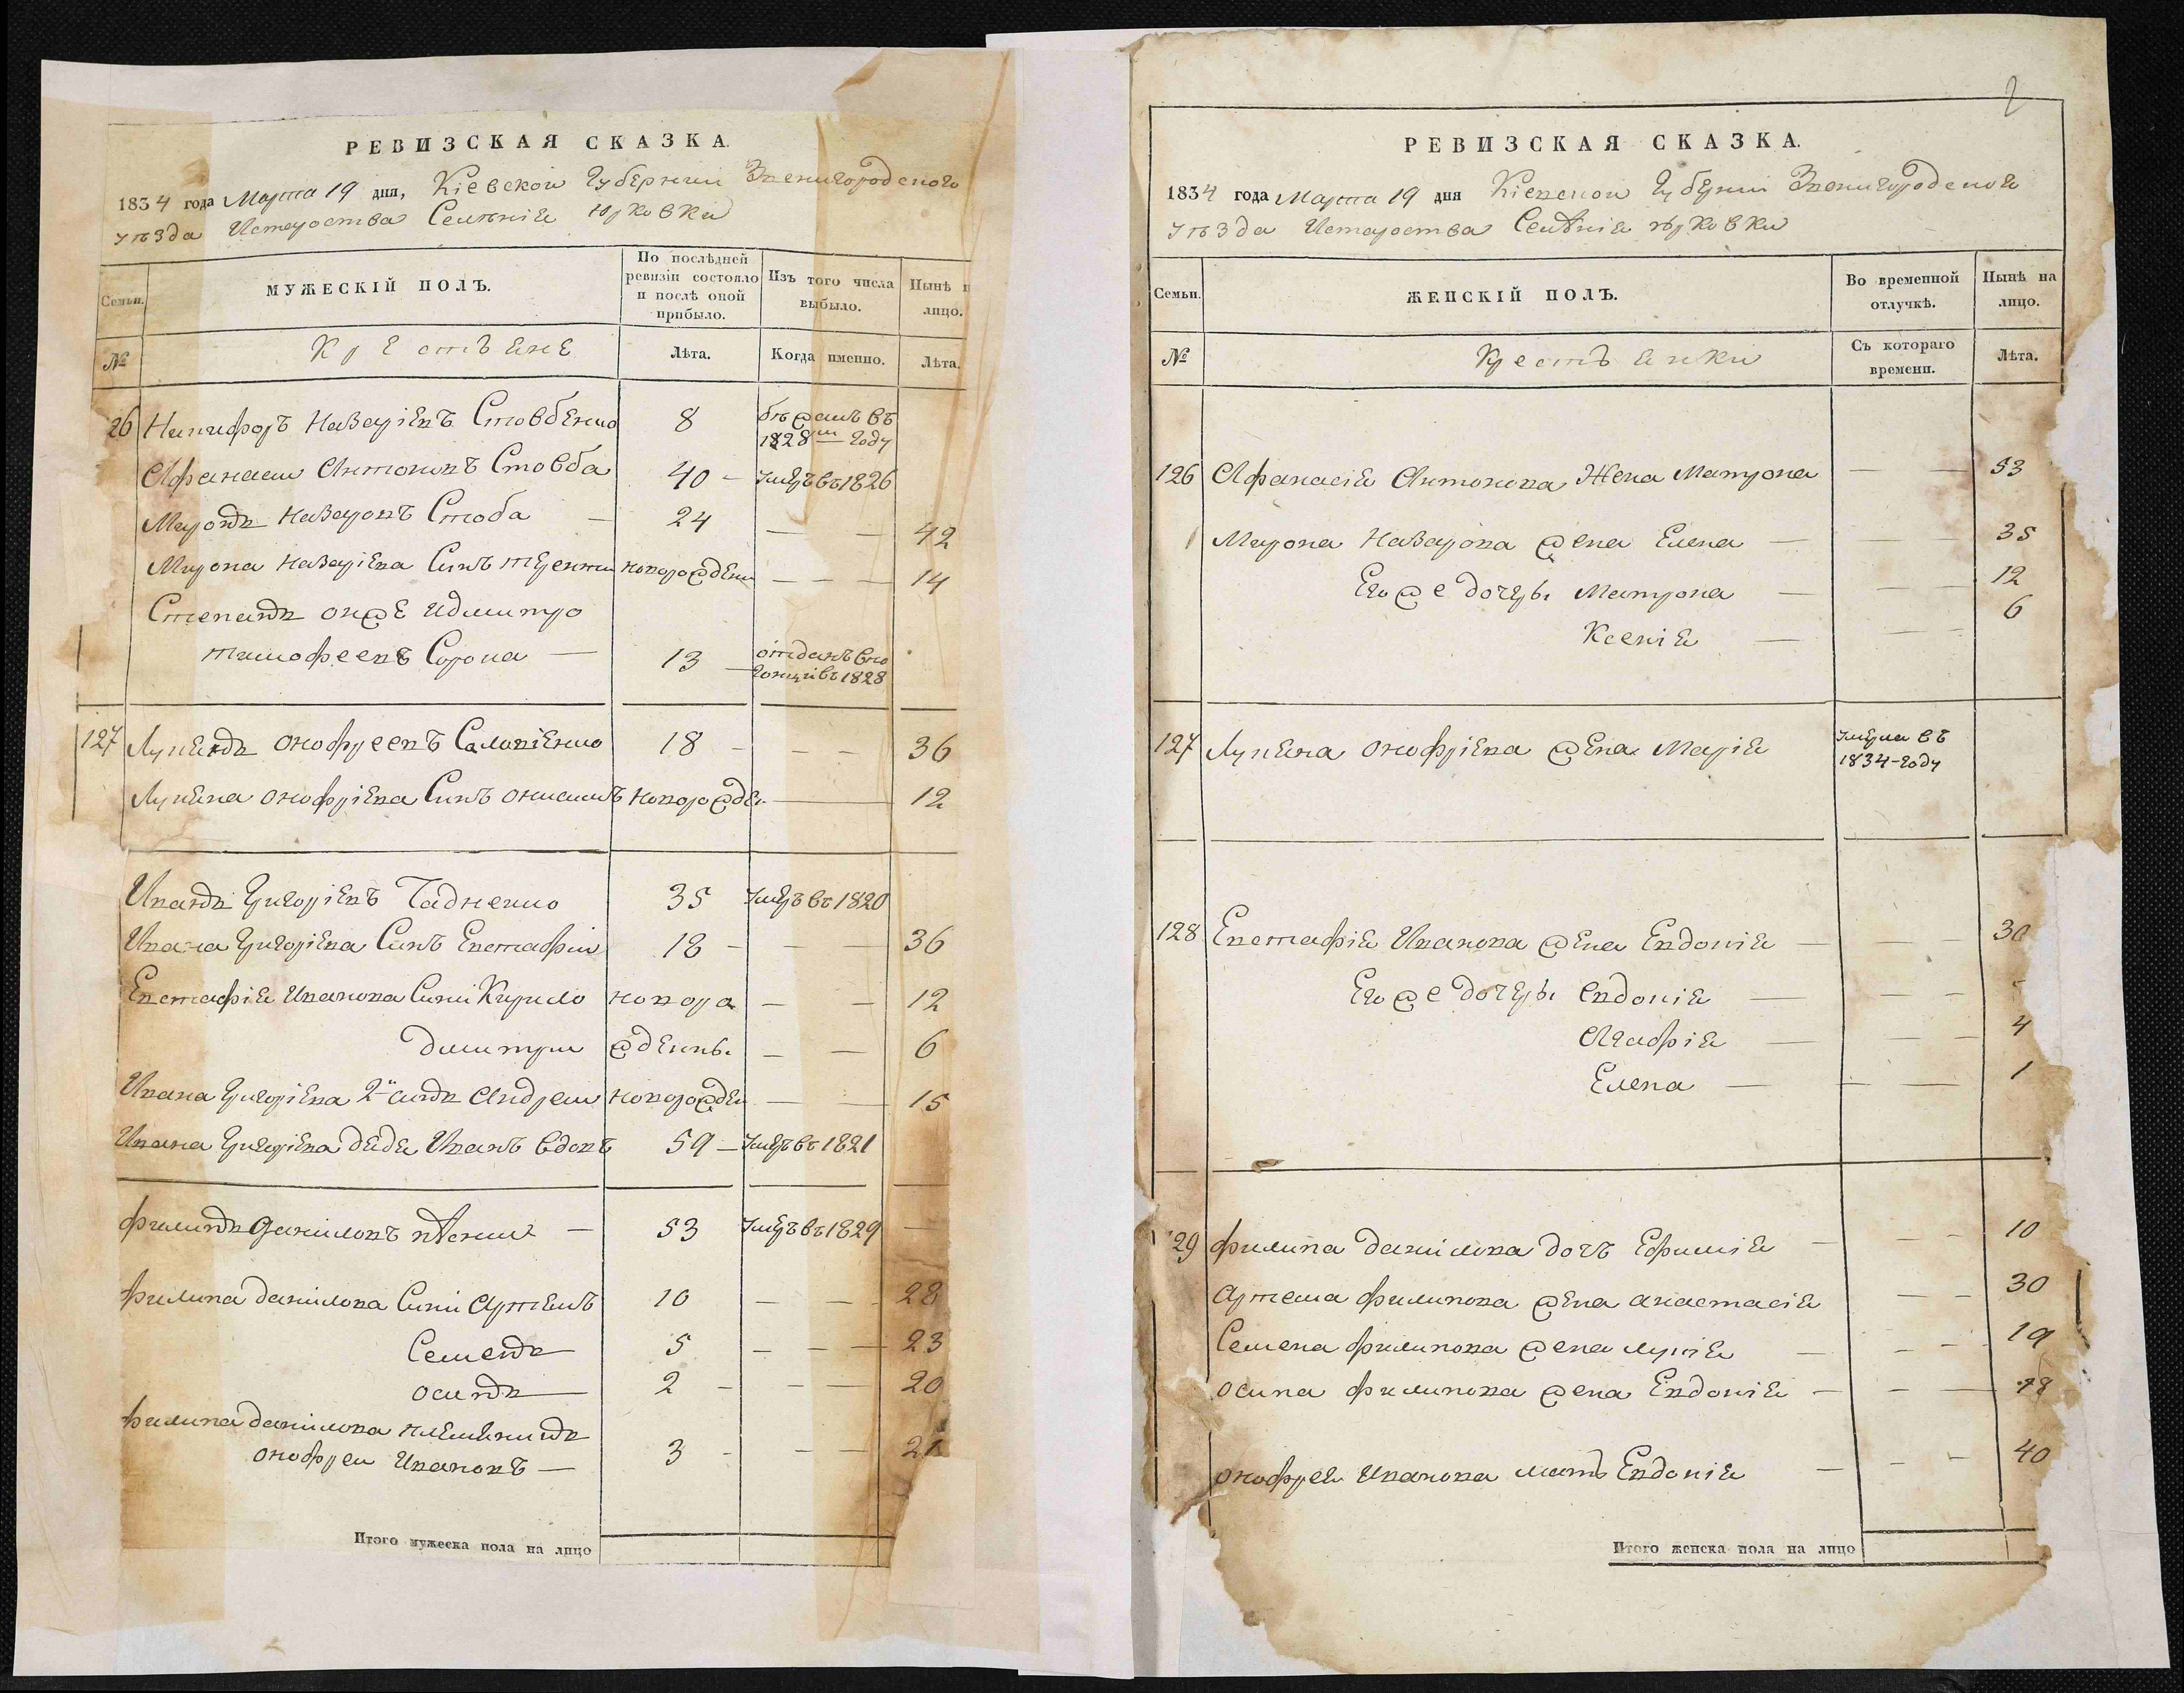 РЕВИЗСКАЯ СКАЗКА.
1834 года Марта 19 дня, Кіевской Губернии Звенигородского
уѣзда Истароства Селѣнія Юрковки
Семьи.
МУЖЕСКІЙ ПОЛЪ.
По послѣдней ревизіи состояло и послѣ оной прибыло.
Изъ того числа выбыло.
Нынѣ н лицо.
№
Крестъяне
Лѣта.
Когда именно.
Лѣта.
26 Никифоръ Назаріевъ Стовбенко 8 бѣжалъ въ
1828м году
Афанасий Антоновъ Стовба 40 - умеръ въ 1826
Миронъ Назаровъ Стоба — 24 — — 42
Мирона Назаріева Сынъ Терентий новорожденъ — — — 14
Степанъ онже идмитро
тимофеевъ Сорока — 13 — отданъ впо
гонци въ 1828
127 Лукянъ Онофреевъ 18 - — — 36
Лукяна Онофріева Сынъ Онисимъ новорожде. — 12
Иванъ Григоріевъ 35 умеръ въ 1820
Ивана Григоріева Сынъ Евстафий 18 - — — 36
Евстафія Иванова Сыни Кирило новора — — 12
Дмитрий ждены. — — 6
Ивана Григоріева 2й сынъ Андрей новорожден — — 15
Ивана Григоріева дядя Иванъ вдовъ 59 — умеръ въ 1821
Филипъ Даниловъ — 53 умеръ въ 1829 —
Филипа Данилова Сыни Артемъ 10 — — 28
Семенъ 5 — — — 23
Осипъ 2 - — — 20
Филипа Данилова племянникъ
Онофрей Ивановъ — 3 - — — 21
Итого мужеска пола на лицо
2
РЕВИЗСКАЯ СКАЗКА.
1834 года Марта 19 дня Кіевской Губерніи Звенигородского
уѣзда Истароства Селѣнія Юрковки
Семьи.
ЖЕНСКІЙ ПОЛЪ.
Во временной отлучкѣ.
Нынѣ на лицо.
№
Крестъянки
Съ котораго времени.
Лѣта.
126 Афанасія Антонова Жена Матрона — — 53
Мирона Назарова жена Елена — — — 35
Его же дочеры Матрона — — — 12
Ксенія — — — 6
127 Лукяна Онофріева жена Марія умерла въ
1834-году
128 Евстафія Иванова жена Евдокія — — — 30
Его же дочеры Евдокія — — — -
Агафія — — — 4
Елена — — — 1
129 Филипа Данилова дочъ Ефимія — — — 10
Артема Филипова жена Анастасія — — 30
Семена Филипова жена Лукія — — — 19
Осипа Филипова жена Евдокія — — — 18
Онофрея Иванова мать Евдокія — — — 40
Итого женска пола на лицо